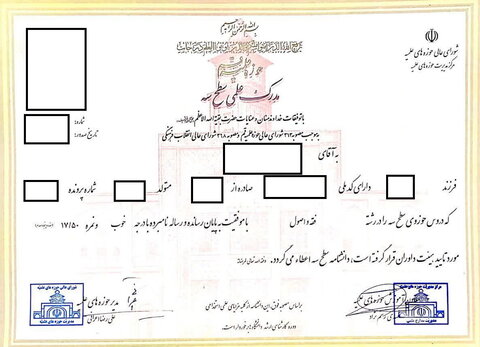 بسم الله الرحمن الرحیم
شورای عالی حوزه های علمیه
مرکز مدیریت حوزه های علمیه
حوزه علمیه قم
مدرک علمی سطح سه
شماره:
تاریخ صدور:
با توفیقات خداوند منان و عنایات حضرت بقیة الله الاعظم
به موجب مصوبه ۲۱۳ شورای عالی حوزه علمیه قم و مصوبه ۳۱۸ شورای عالی انقلاب فرهنگی
به آقای
فرزند دارای کد ملی صادره از متولد شماره پرونده
که دروس حوزوی سطح سه را در رشته فقه و اصول با موفقیت به پایان رسانده و رساله نامبرده با درجه خوب و نمره ۱۷/۵۰
مورد تایید هیئت داوران قرار گرفته است، دانشنامه سطح سه اعطاء می گردد.
شورای عالی حوزه های علمیه
مدیر حوزه های علمیه
علی رضا اعرافی
مرکز مدیریت حوزه های علمیه